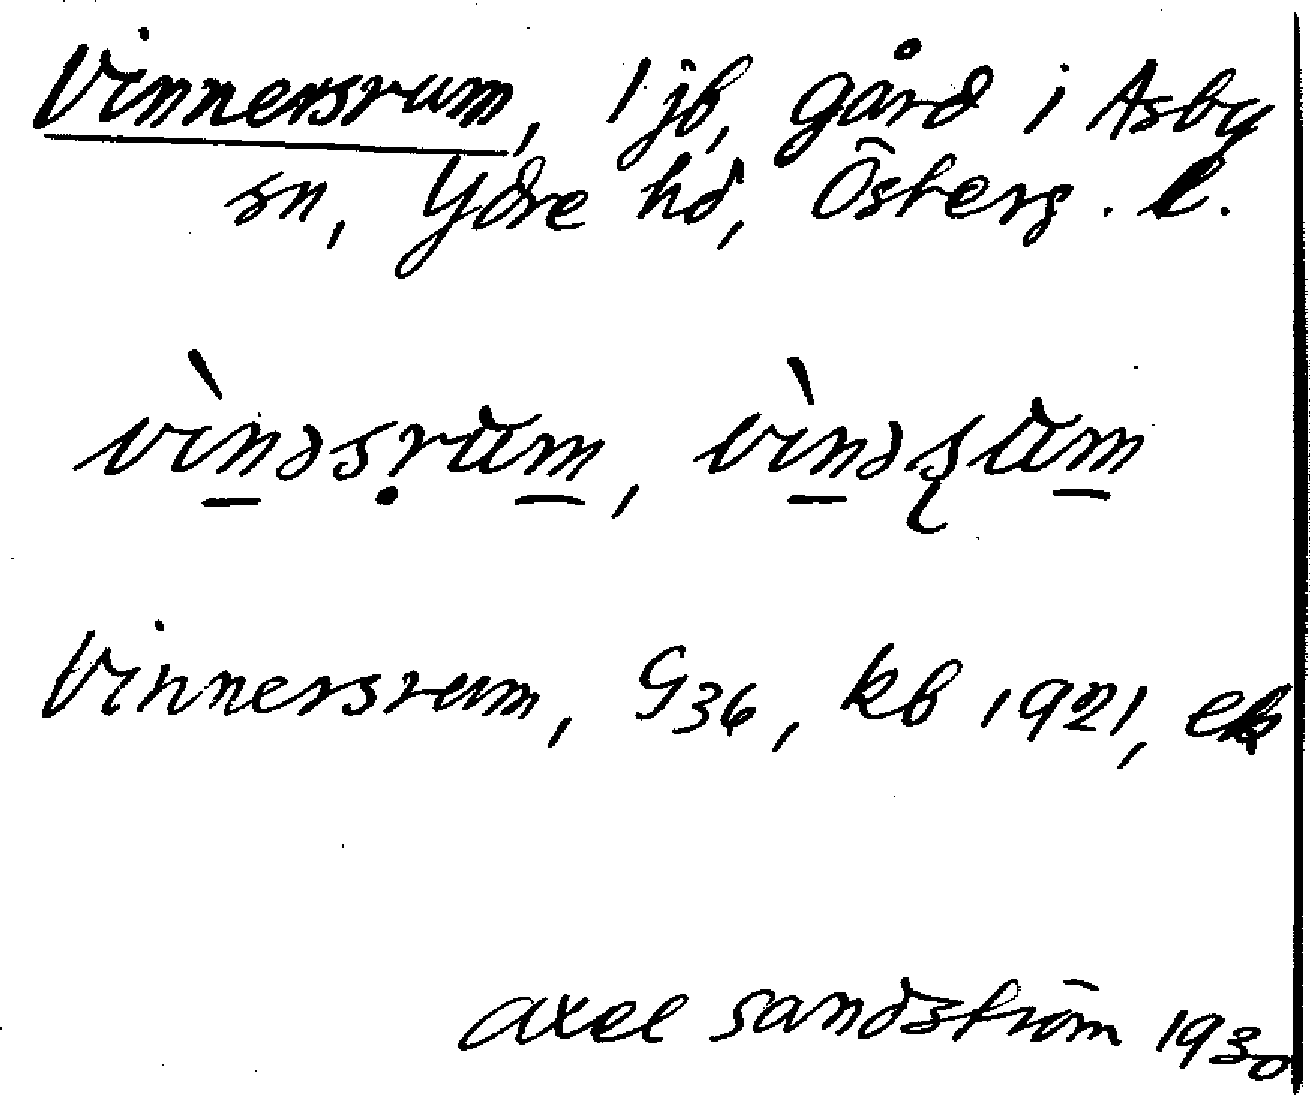 Vinnersrum, 1 jb, gård i Asby
sn, Ydre hd, Österg. l.
vìnəsrum, vìnəʂum
Vinnersrum, G36, kb 1921, ek
axel sandström 1930